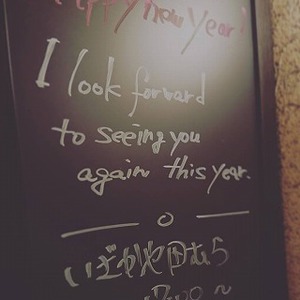 Happy New Year!
I look forward
to seeing you
again this year.
いざかや田むら
17:00〜